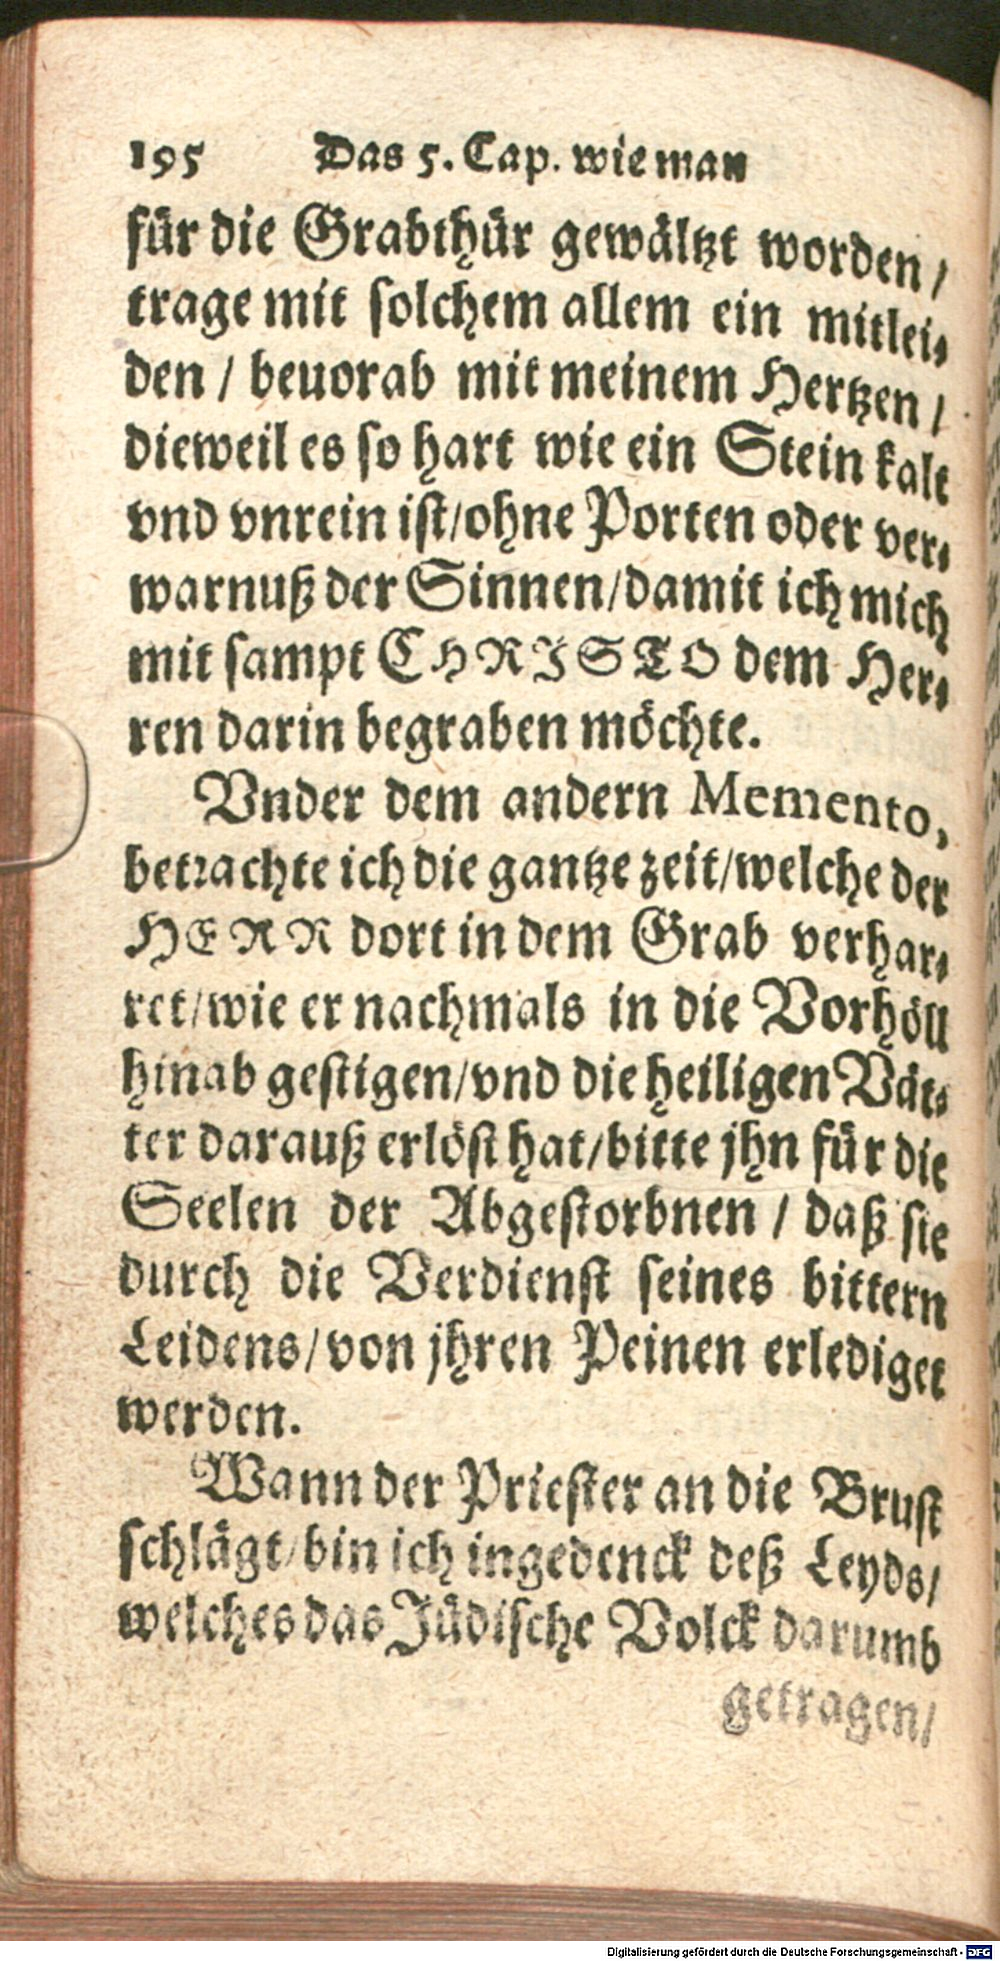 195 Das 5. Cap. wie man
für die Grabthür gewältzt worden /
trage mit solchem allem ein mitlei⸗
den / beuorab mit meinem Hertzen /
dieweil es so hart wie ein Stein kalt
vnd vnrein ist / ohne Porten oder ver⸗
warnuß der Sinnen / damit ich mich
mit sampt CHRISTO dem Her⸗
ren darin begraben möchte.
Vnder dem andern Memento,
betrachte ich die gantze zeit / welche der
HERR dort in dem Grab verhar⸗
ret / wie er nachmals in die Vorhöll
hinab gestigen / vnd die heiligen Vät⸗
ter darauß erlöst hat / bitte jhn für die
Seelen der Abgestorbnen / daß sie
durch die Verdienst seines bittern
Leidens / von jhren Peinen erlediget
werden.
Wann der Priester an die Brust
schlägt / bin ich ingedenck deß Leyds /
welches das Jüdische Volck darumb
getragen /
Digitalisierung gefördert durch die Deutsche Forschungsgemeinschaft - DFG